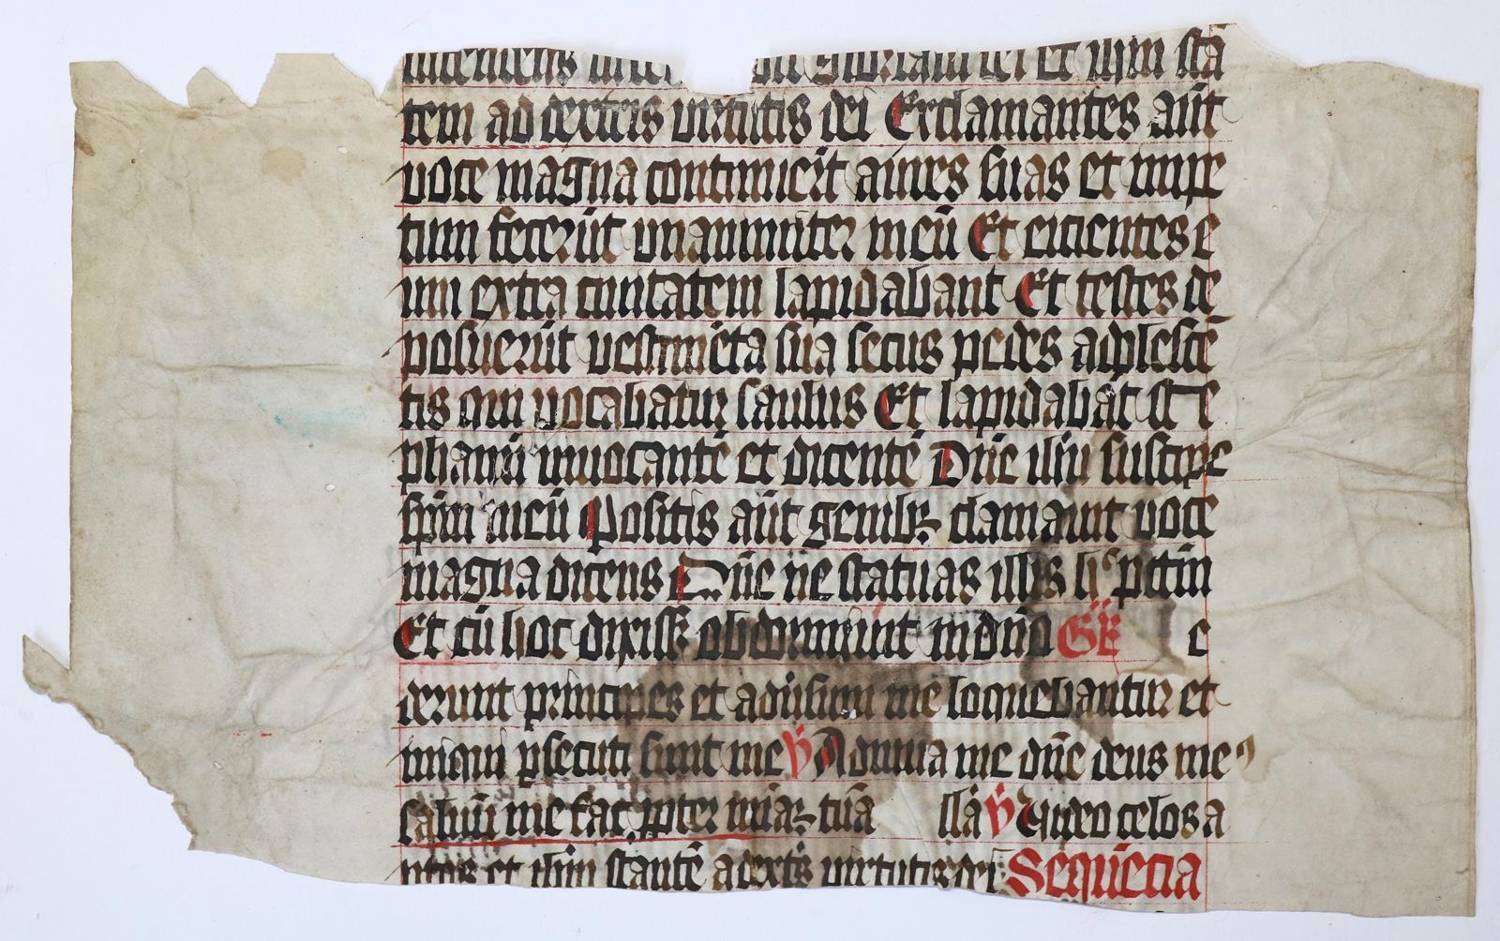 gloriam dei et ihm sta
tem ad dextris virtutis dei Exclamantes aūt
voce magna continuerūt aures suas et impe
tum fecerūt vnanimiter in eū Et eicientes e
um extra ciuitatem lapidabant Et testes de
posuerūt vestimēta sua secus pedes adolescē
tis qui vocabatur saulus Et lapidabāt ste
phanū inuocantē et dicentē Dn̄e ihū suscipe
spm̄ meū Positis aūt genibꝫ clamauit voce
magna dicens Dn̄e ne statuas illis hͦ pctm̄
Et cū hoc dixissꝫ obdormiuit in dn̄o GR̄ e
derunt principes et adūsum me loquebantur et
iniqui ꝑsecuti sunt me V̄ Adiuua me dn̄e deus meꝰ
saluū me fac ꝓpter miāꝫ tuā lla V̄ Uideo celos a
ꝑtos et ihm̄ stantē a dextris virtutis dei Sequēcia